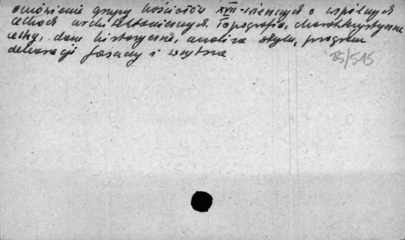 omówienie grupy kościołów XVII-wiecznych o wspólnych
cechach architektonicznych. Topografia, charakterystyczne
cechy, dane historyczne, analiza stylu, program
dekoracji fasady i wnętrza
75/515